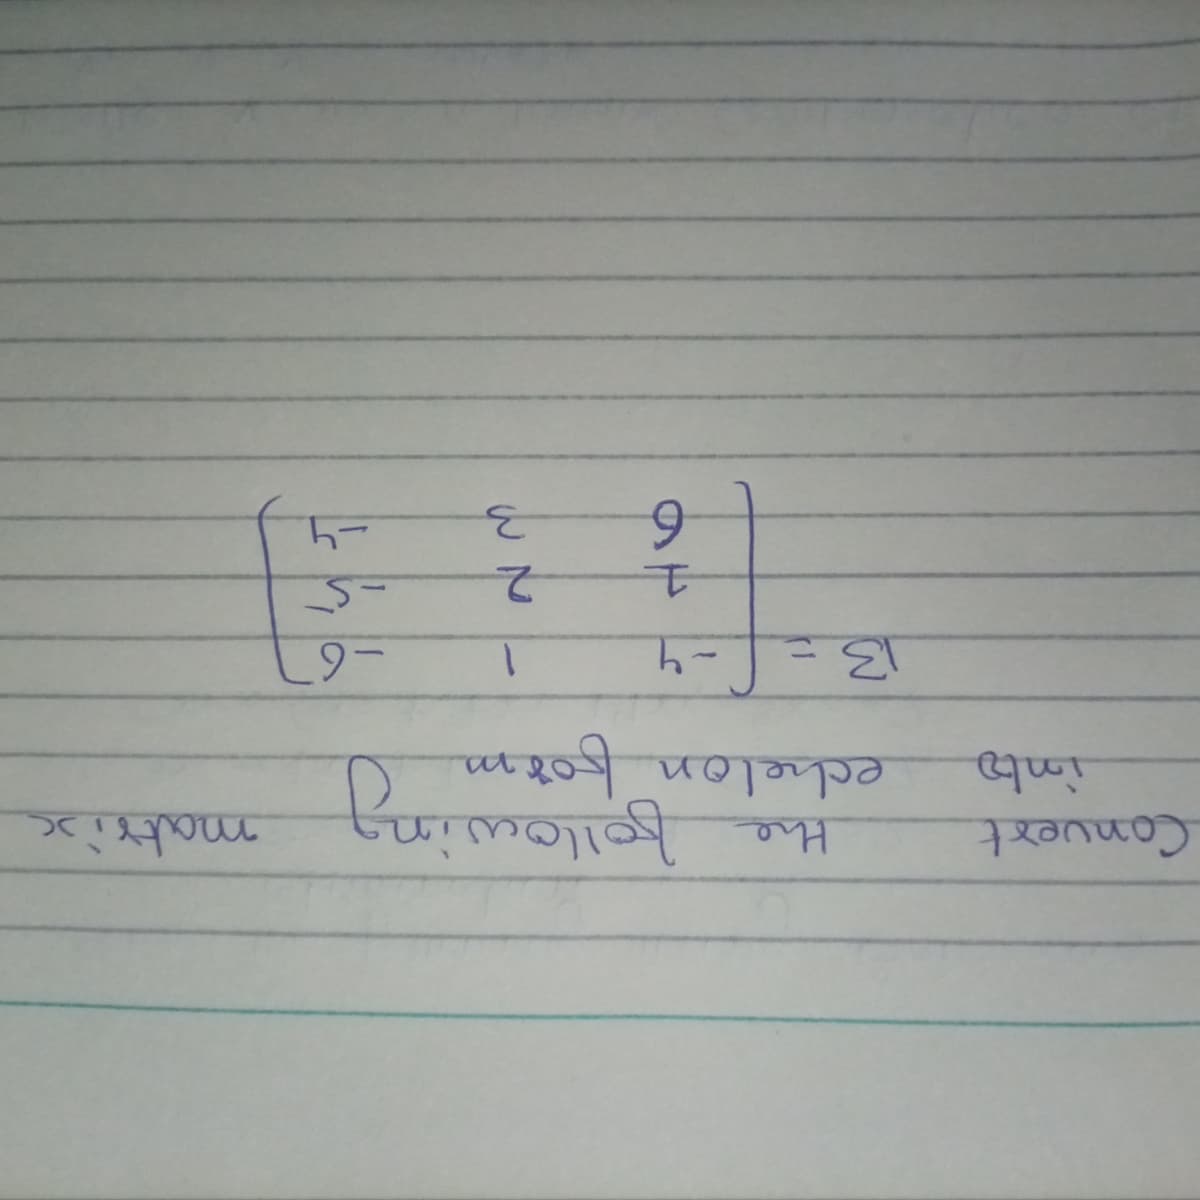 Convert the following matrix
into echelon form
B = [ -4 1 -6
1 2 -5
6 3 -4 ]